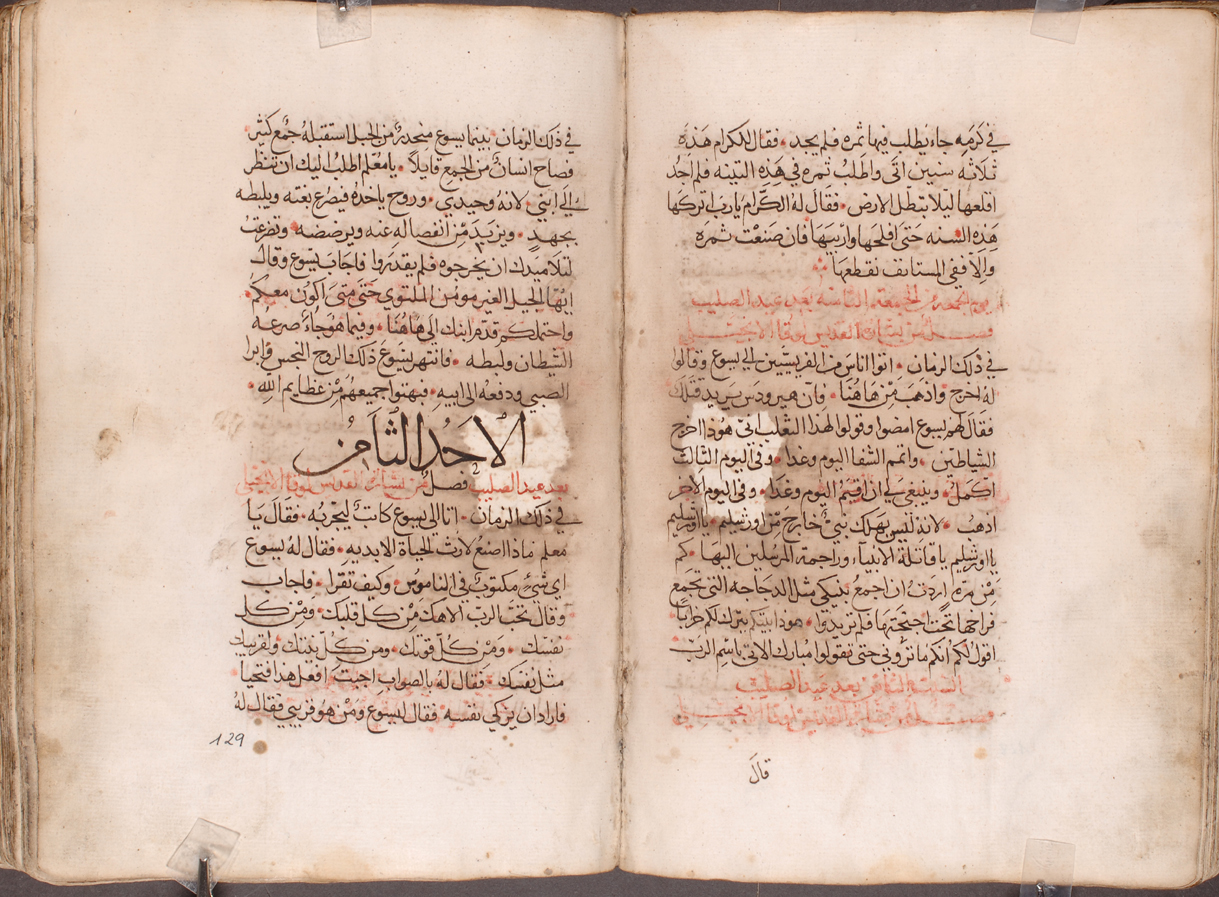 في كرمه جاء يطلب فيها ثمره فلم يجد • فقال للكرام هذه
ثلاثه سنين اتى واطلب ثمره في هذه التينه فلم اجد
اقلعها ليلا تبطل الارض • فقال له الكرام يارب اتركها
هذه السنه حتى افلحها وازبلها فان صنعت ثمره
والا ففي المستانف نقطعها
يوم الجمعه من الجمعه الثامنه بعد عيد الصليب
فصل من بشاره القديس لوقا الانجيلي
في ذلك الزمان • اتوا اناس من الفريسيين الى يسوع وقالوا
له اخرج واذهب من هاهنا • فان هيرودس يريد قتلك
فقال لهم يسوع امضوا وقولوا لهذا الثعلب اني هوذا اخرج
الشياطين • واتمم الشفا اليوم وغدا • وفي اليوم الثالث
اكمل • وينبغي لي ان اقيم اليوم وغدا • وفي اليوم الاخر
اذهب • لانه ليس يهلك نبي خارج من اورشليم • يا اورشليم
يا اورشليم يا قاتلة الانبياء وراجمة المرسلين اليها • كم
من مره اردت ان اجمع بنيكي مثل الدجاجه التي تجمع
فراخها تحت اجنحتها فلم تريدوا • هوذا بيتكم يترك لكم خرابا
اقول لكم انكم ما تروني حتى تقولوا مبارك الاتي باسم الرب
السبت الثامن بعد عيد الصليب
القديس لوقا الانجيلي
قال
في ذلك الزمان • بينما يسوع منحدر من الجبل استقبله جمع كثير
فصاح انسان من الجمع قايلا • يا معلم اطلب اليك ان تنظر
الى ابني • لانه وحيدي • وروح ياخذه فيصرع بغته ويلبطه
بجهد • ويزبد من انفصاله عنه ويرضضه • وتضرعت
لتلاميدك ان يخرجوه فلم يقدروا فاجاب يسوع وقال
ايها الجيل الغير مومن الملتوي حتى متى اكون معكم •
واحتملكم قدم ابنك الى هاهنا • وفيما هو جاء صرعه
الشيطان ولبطه • فانتهر يسوع ذلك الروح النجس وابرا
الصبي ودفعه الى ابيه • فبهتوا جميعهم من عظايم الله •
الاحد الثامن
بعد عيد الصليب فصل من بشارة القديس لوقا الانجيلي
في ذلك الزمان • اتا الى يسوع كاتب ليجربه • فقال يا
معلم ماذا اصنع لارث الحياة الابديه • فقال له يسوع
اي شيء مكتوب في الناموس • وكيف تقرا • فاجاب
وقال تحب الرب الاهك من كل قلبك • ومن كل
نفسك • ومن كل قوتك • ومن كل نيتك • ولقريبك
مثل نفسك • فقال له بالصواب اجبت افعل هذا فتحيا
فاراد ان يزكي نفسه • فقال ليسوع ومن هو قريبي فقال له
129